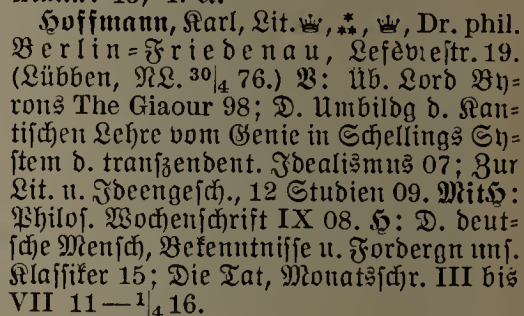 Hoffmann, Karl, Lit. ♛, ⁂, ♛, Dr. phil.
Berlin=Friedenau, Lefèvrestr. 19.
(Lübben, NL. 30|4 76.) V: Üb. Lord By=
rons The Giaour 98; D. Umbildg d. Kan=
tischen Lehre vom Genie in Schellings Sy=
stem d. transzendent. Idealismus 07; Zur
Lit. u. Ideengesch., 12 Studien 09. MitH:
Philos. Wochenschrift IX 08. H: D. deut=
sche Mensch, Bekenntnisse u. Fordergn uns.
Klassiker 15; Die Tat, Monatsschr. III bis
VII 11—1|4 16.